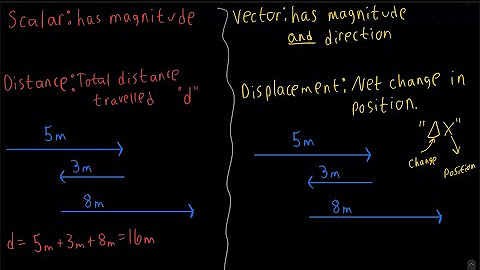 Scalar: has magnitude
Distance: Total distance
travelled "d"
5m
3m
8m
d = 5m + 3m + 8m = 16m
Vector: has magnitude
and direction
Displacement: Net change in
position.
"ΔX"
Change
Position
5m
3m
8m